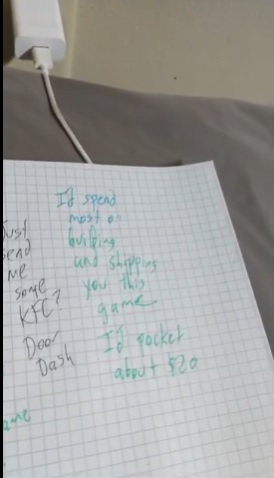 Just
send
me
some
KFC?
Door
Dash
I'd spend
most on
building
and shipping
you this
game
I'd pocket
about $20